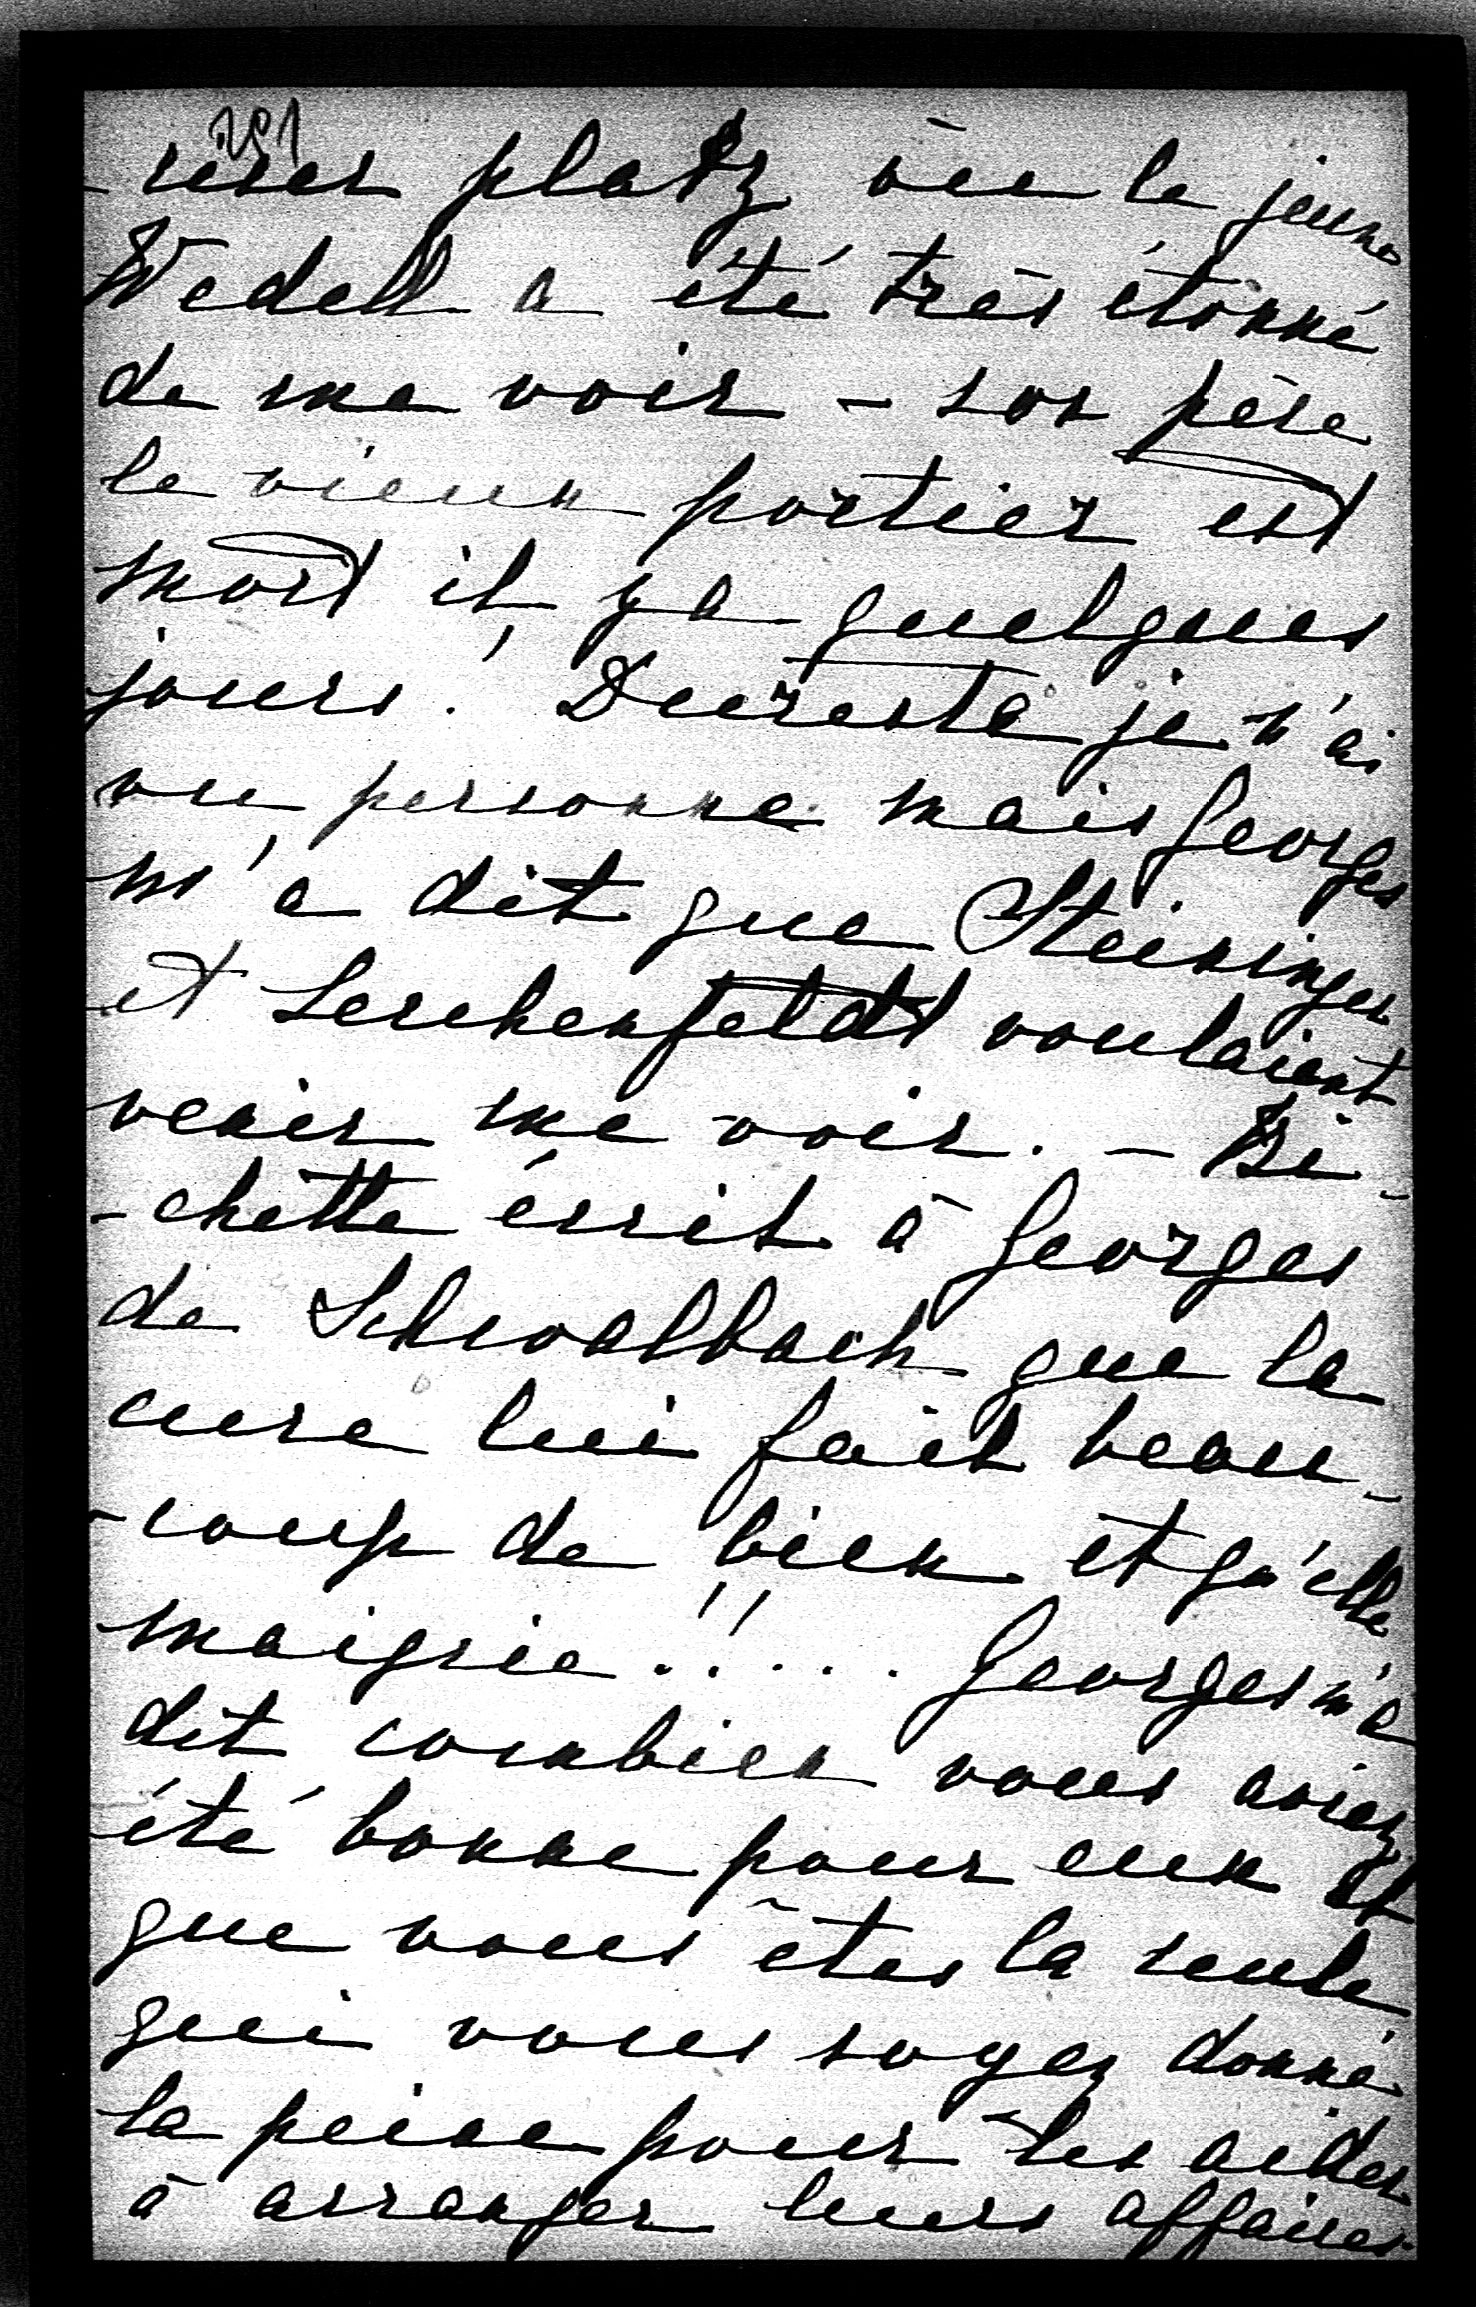 -riser platz où le jeune
Wedell a été très étonné
de me voir – son père
le vieux portier est
mort il y a quelques
jours! Dureste je n'ai
vu personne mais Georges
m'a dit que Steininger
et Lerchenfeldt voulaient
venir me voir. – Bi-
-chette écrit à Georges
de Schwalbach que la
cure lui fait beau-
-coup de bien et qu'elle
maigrie.!!... Georges m'a
dit combien vous aviez
été bonne pour eux et
que vous êtes la seule
qui vous soyez donné
la peine pour les aider
à arranger leurs affaires.